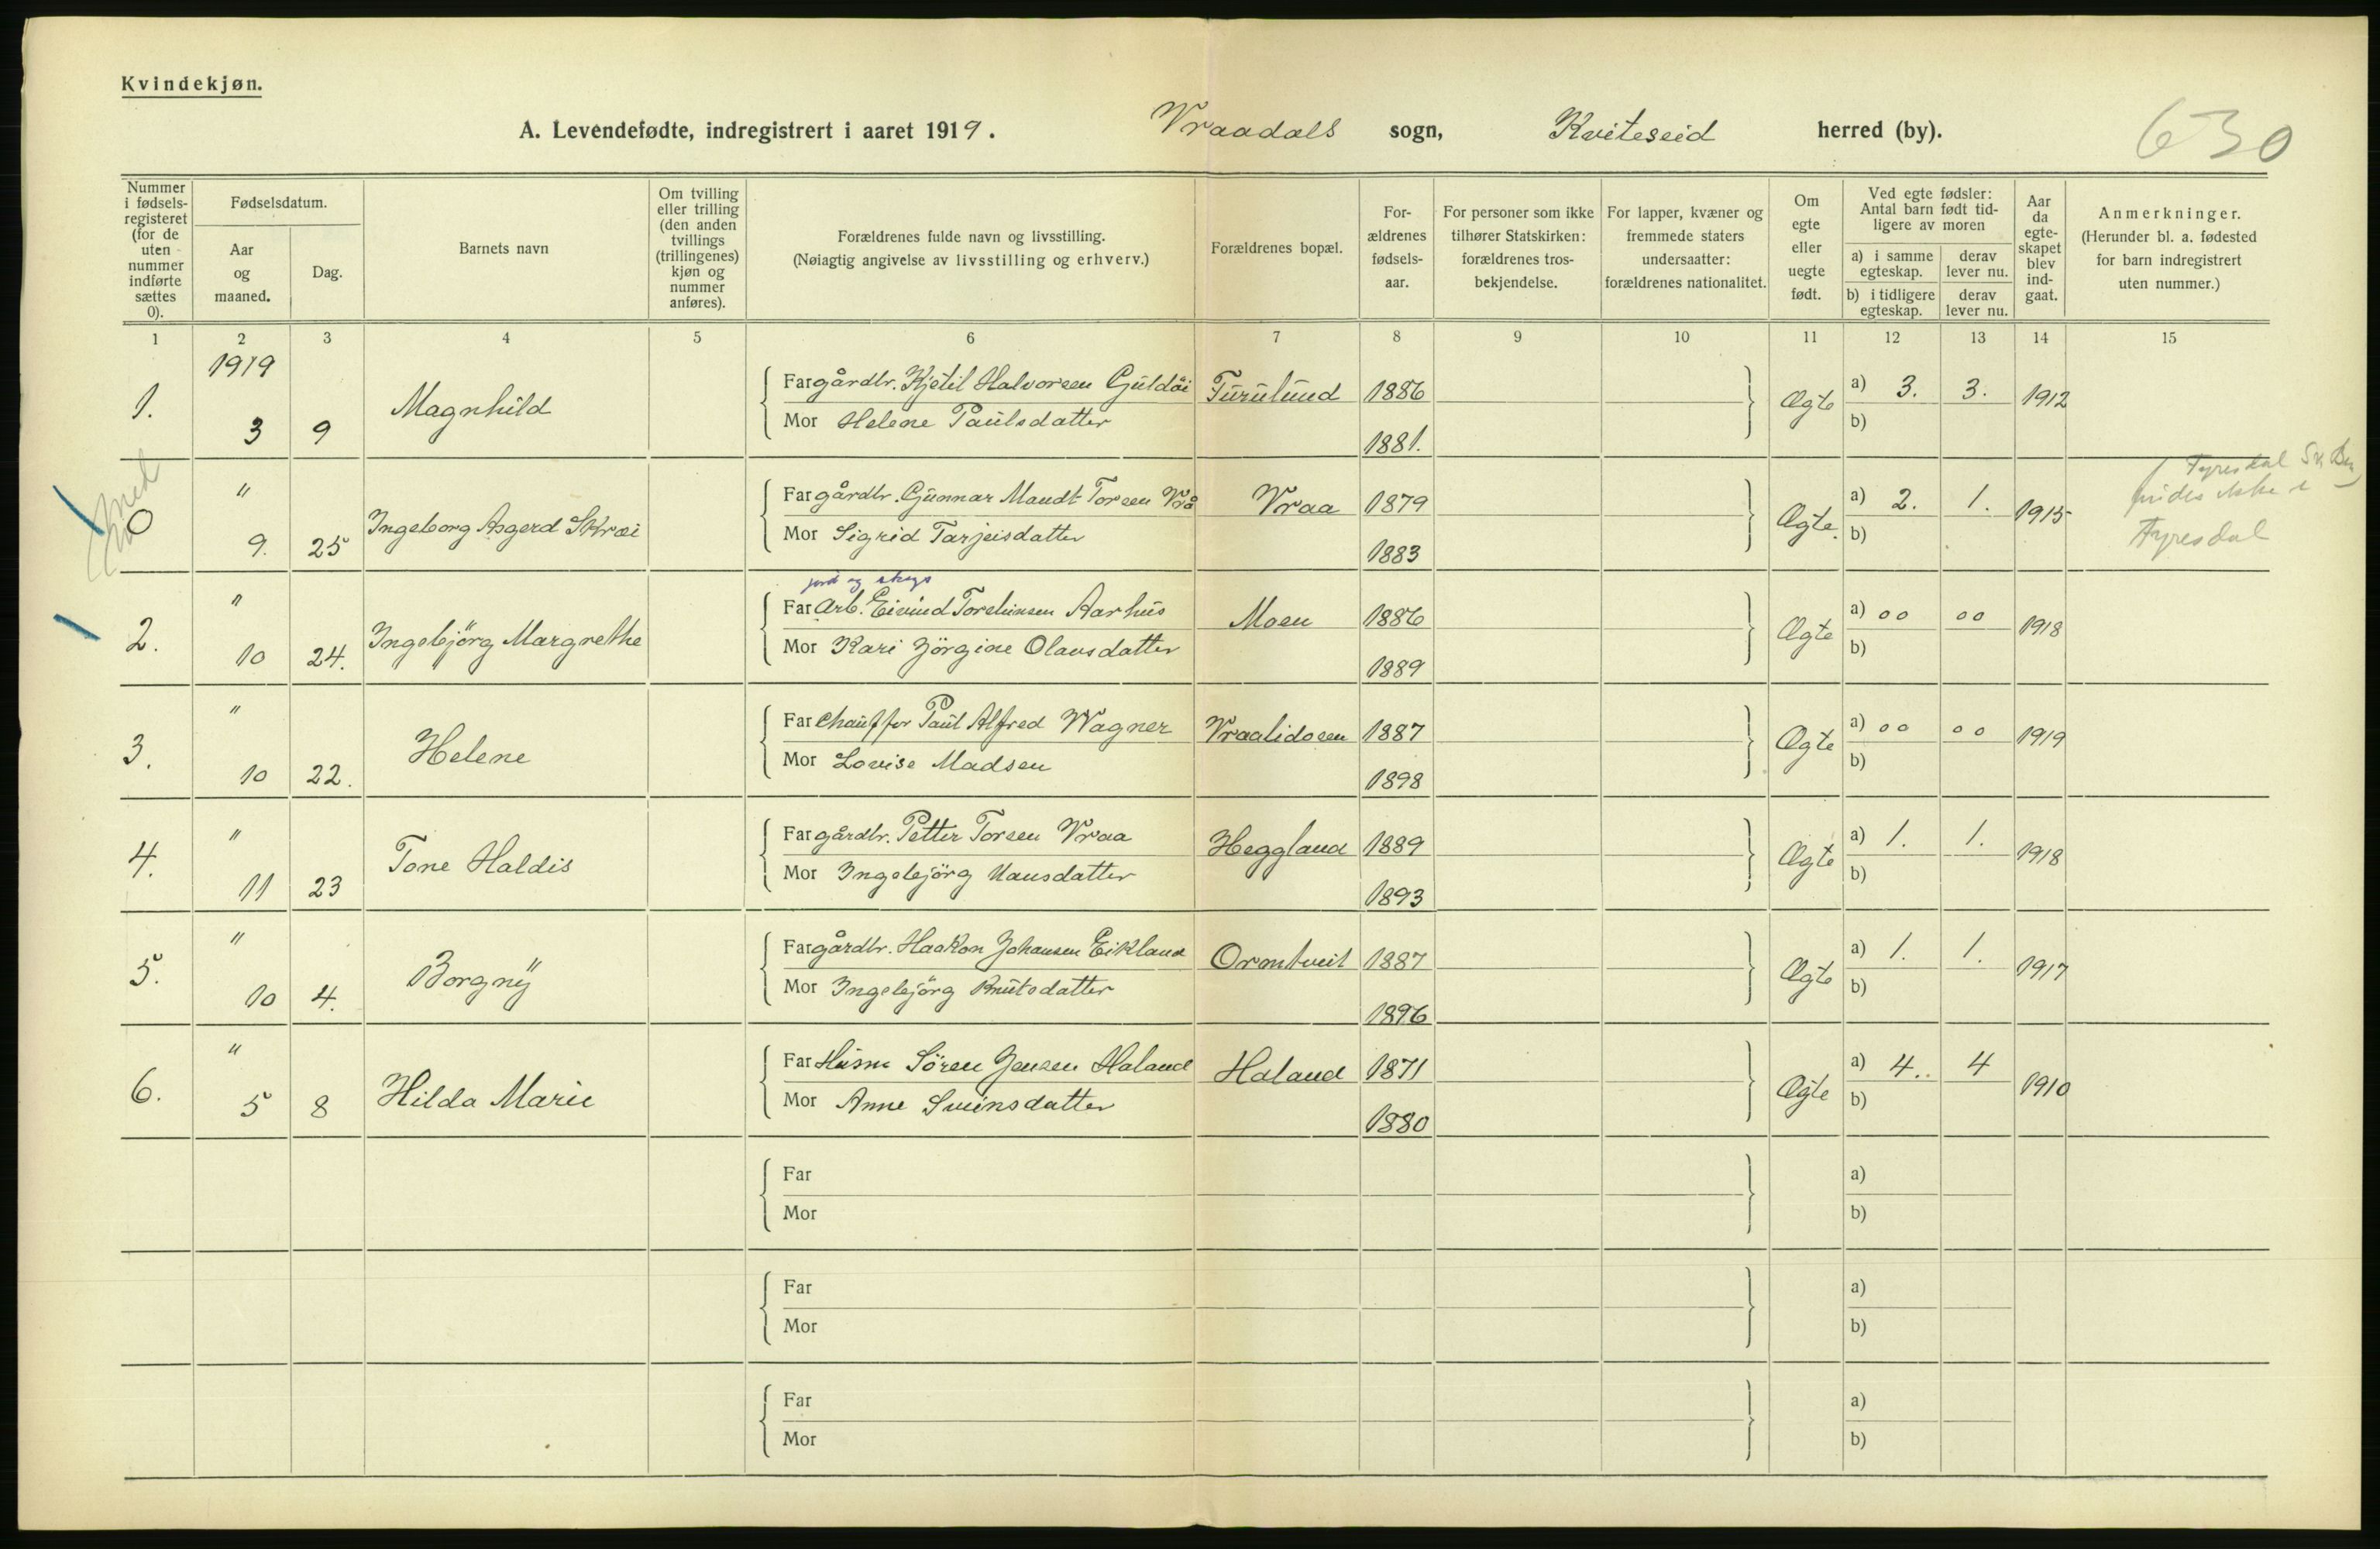 Kvindekjøn.
A. Levendefødte, indregistrert i aaret 1919. Vraadals sogn, Kviteseid herred (by). 630
Nummer i fødsels-registeret (for de uten nummer indførte sættes 0).
Fødselsdatum.
Aar og maaned.
Dag.
Barnets navn
Om tvilling eller trilling (den anden tvillings (trillingenes) kjøn og nummer anføres).
Forældrenes fulde navn og livsstilling.
(Nøiagtig angivelse av livsstilling og erhverv.)
Forældrenes bopæl.
For-ældrenes fødsels-aar.
For personer som ikke tilhører Statskirken: forældrenes tros-bekjendelse.
For lapper, kvæner og fremmede staters undersaatter: forældrenes nationalitet.
Om egte eller uegte født.
Ved egte fødsler: Antal barn født tid-ligere av moren
a) i samme egteskap.
derav lever nu.
b) i tidligere egteskap.
derav lever nu.
Aar da egte-skapet blev ind-gaat.
Anmerkninger.
(Herunder bl. a. fødested for barn indregistrert uten nummer.)
1 2 3 4 5 6 7 8 9 10 11 12 13 14 15
1919
1. 3 9 Magnhild
Far gårdbr. Kjetil Halvorsen Guldåi Furulund 1886
Mor Helene Paulsdatter 1881.
Ægte a) 3. 3. 1912
b)
med
0 " 9. 25 Ingeborg Asgerd Skræi
Far gårdbr. Gunnar Mandt Torsen Vrå Vraa 1879
Mor Sigrid Tarjeisdatter 1883
Ægte. a) 2. 1. 1915
b)
Tyresdal
findes ikke i
Tyresdal
2. " 10 24. Ingebjörg Margrethe
jord og skogs
Far Arb. Eivind Torsteinsen Aarhus Moen 1886
Mor Kari Jörgine Olavsdatter 1889
Ægte a) 00 00 1918
b)
3. " 10 22. Helene
Far Chauffør Paul Alfred Wagner Vraalidosen 1887
Mor Lovise Madsen 1898
Ægte a) 00 00 1919
b)
4. " 11 23 Tone Haldis
Far gårdbr. Petter Torsen Vraa Heggland 1889
Mor Ingebjörg Hansdatter 1893
Ægte a) 1. 1. 1918
b)
5. " 10 4. Borgny
Far gårdbr. Haakon Johansen Eikland Ormtveit 1887
Mor Ingebjörg Knutsdatter 1896
Ægte a) 1. 1. 1917
b)
6. " 5 8 Hilda Marie
Far Husm Sören Jensen Haland Haland 1871
Mor Anne Sveinsdatter 1880
Ægte a) 4. 4 1910
b)
Far a)
Mor b)
Far a)
Mor b)
Far a)
Mor b)